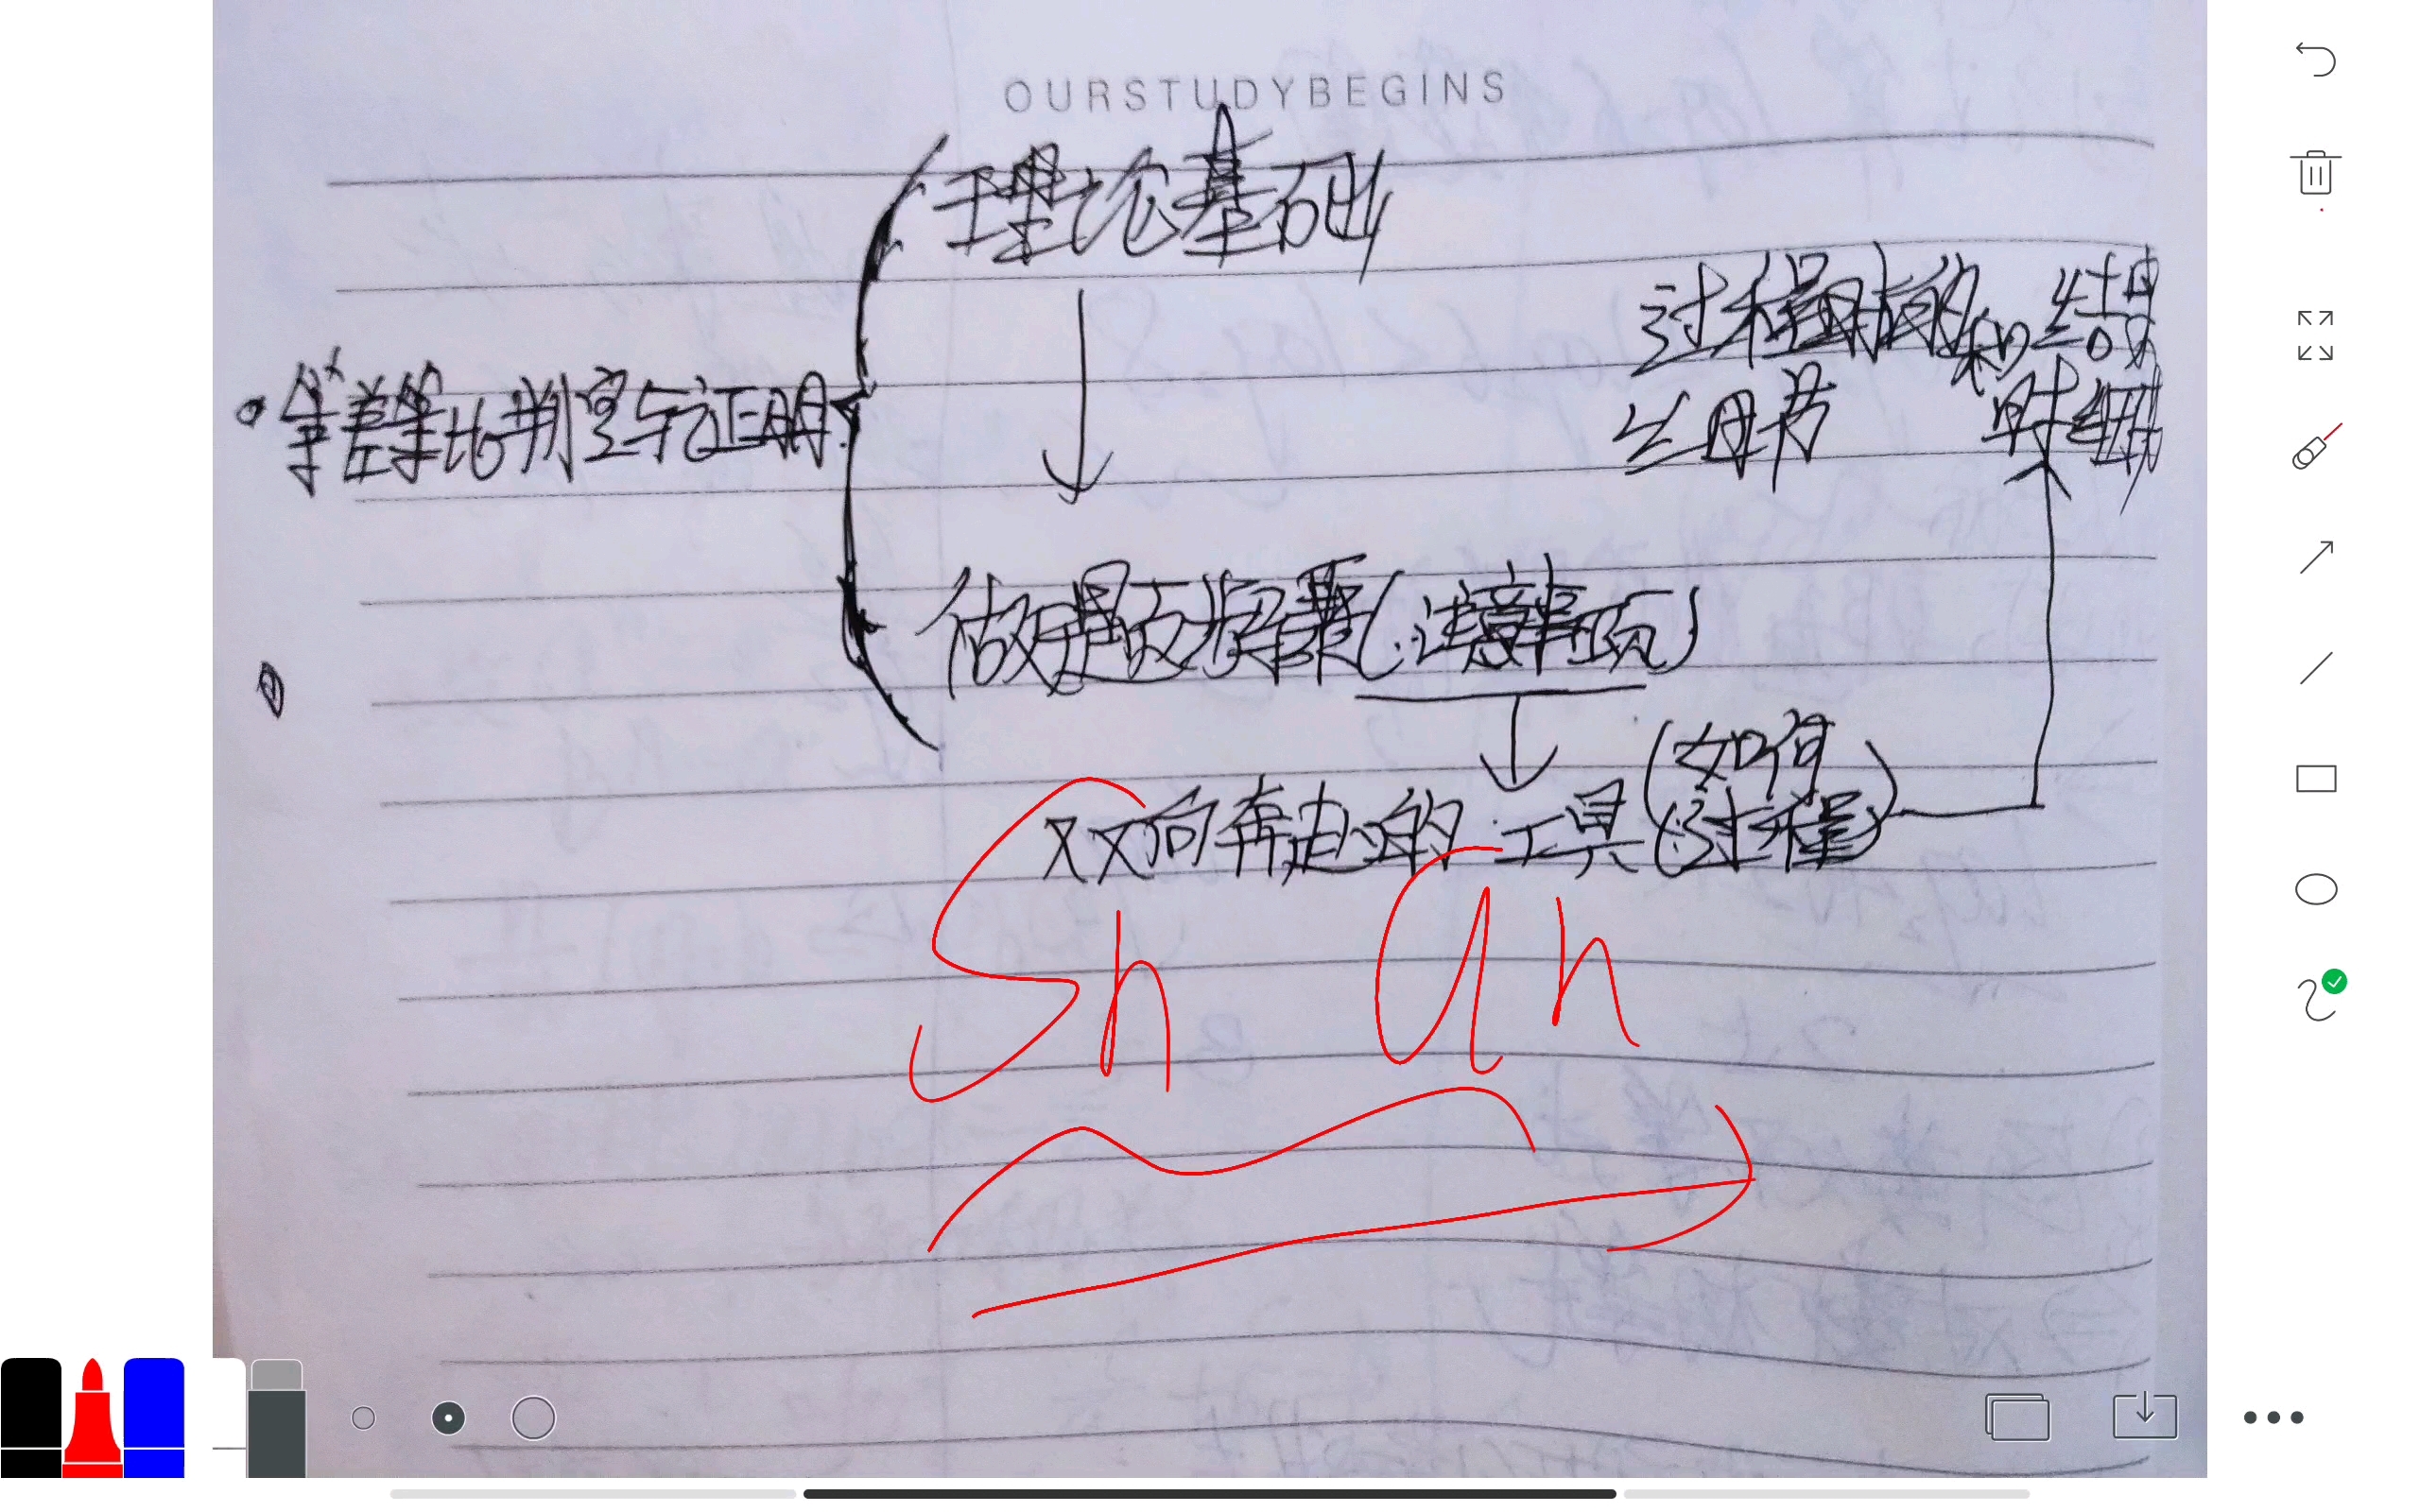 OURSTUDYBEGINS
理论基础
等差等比判定与证明
过程时的和结果
细节 时细
做题步骤(注意事项)
双向奔赴的工具(如何过程)
Sn an